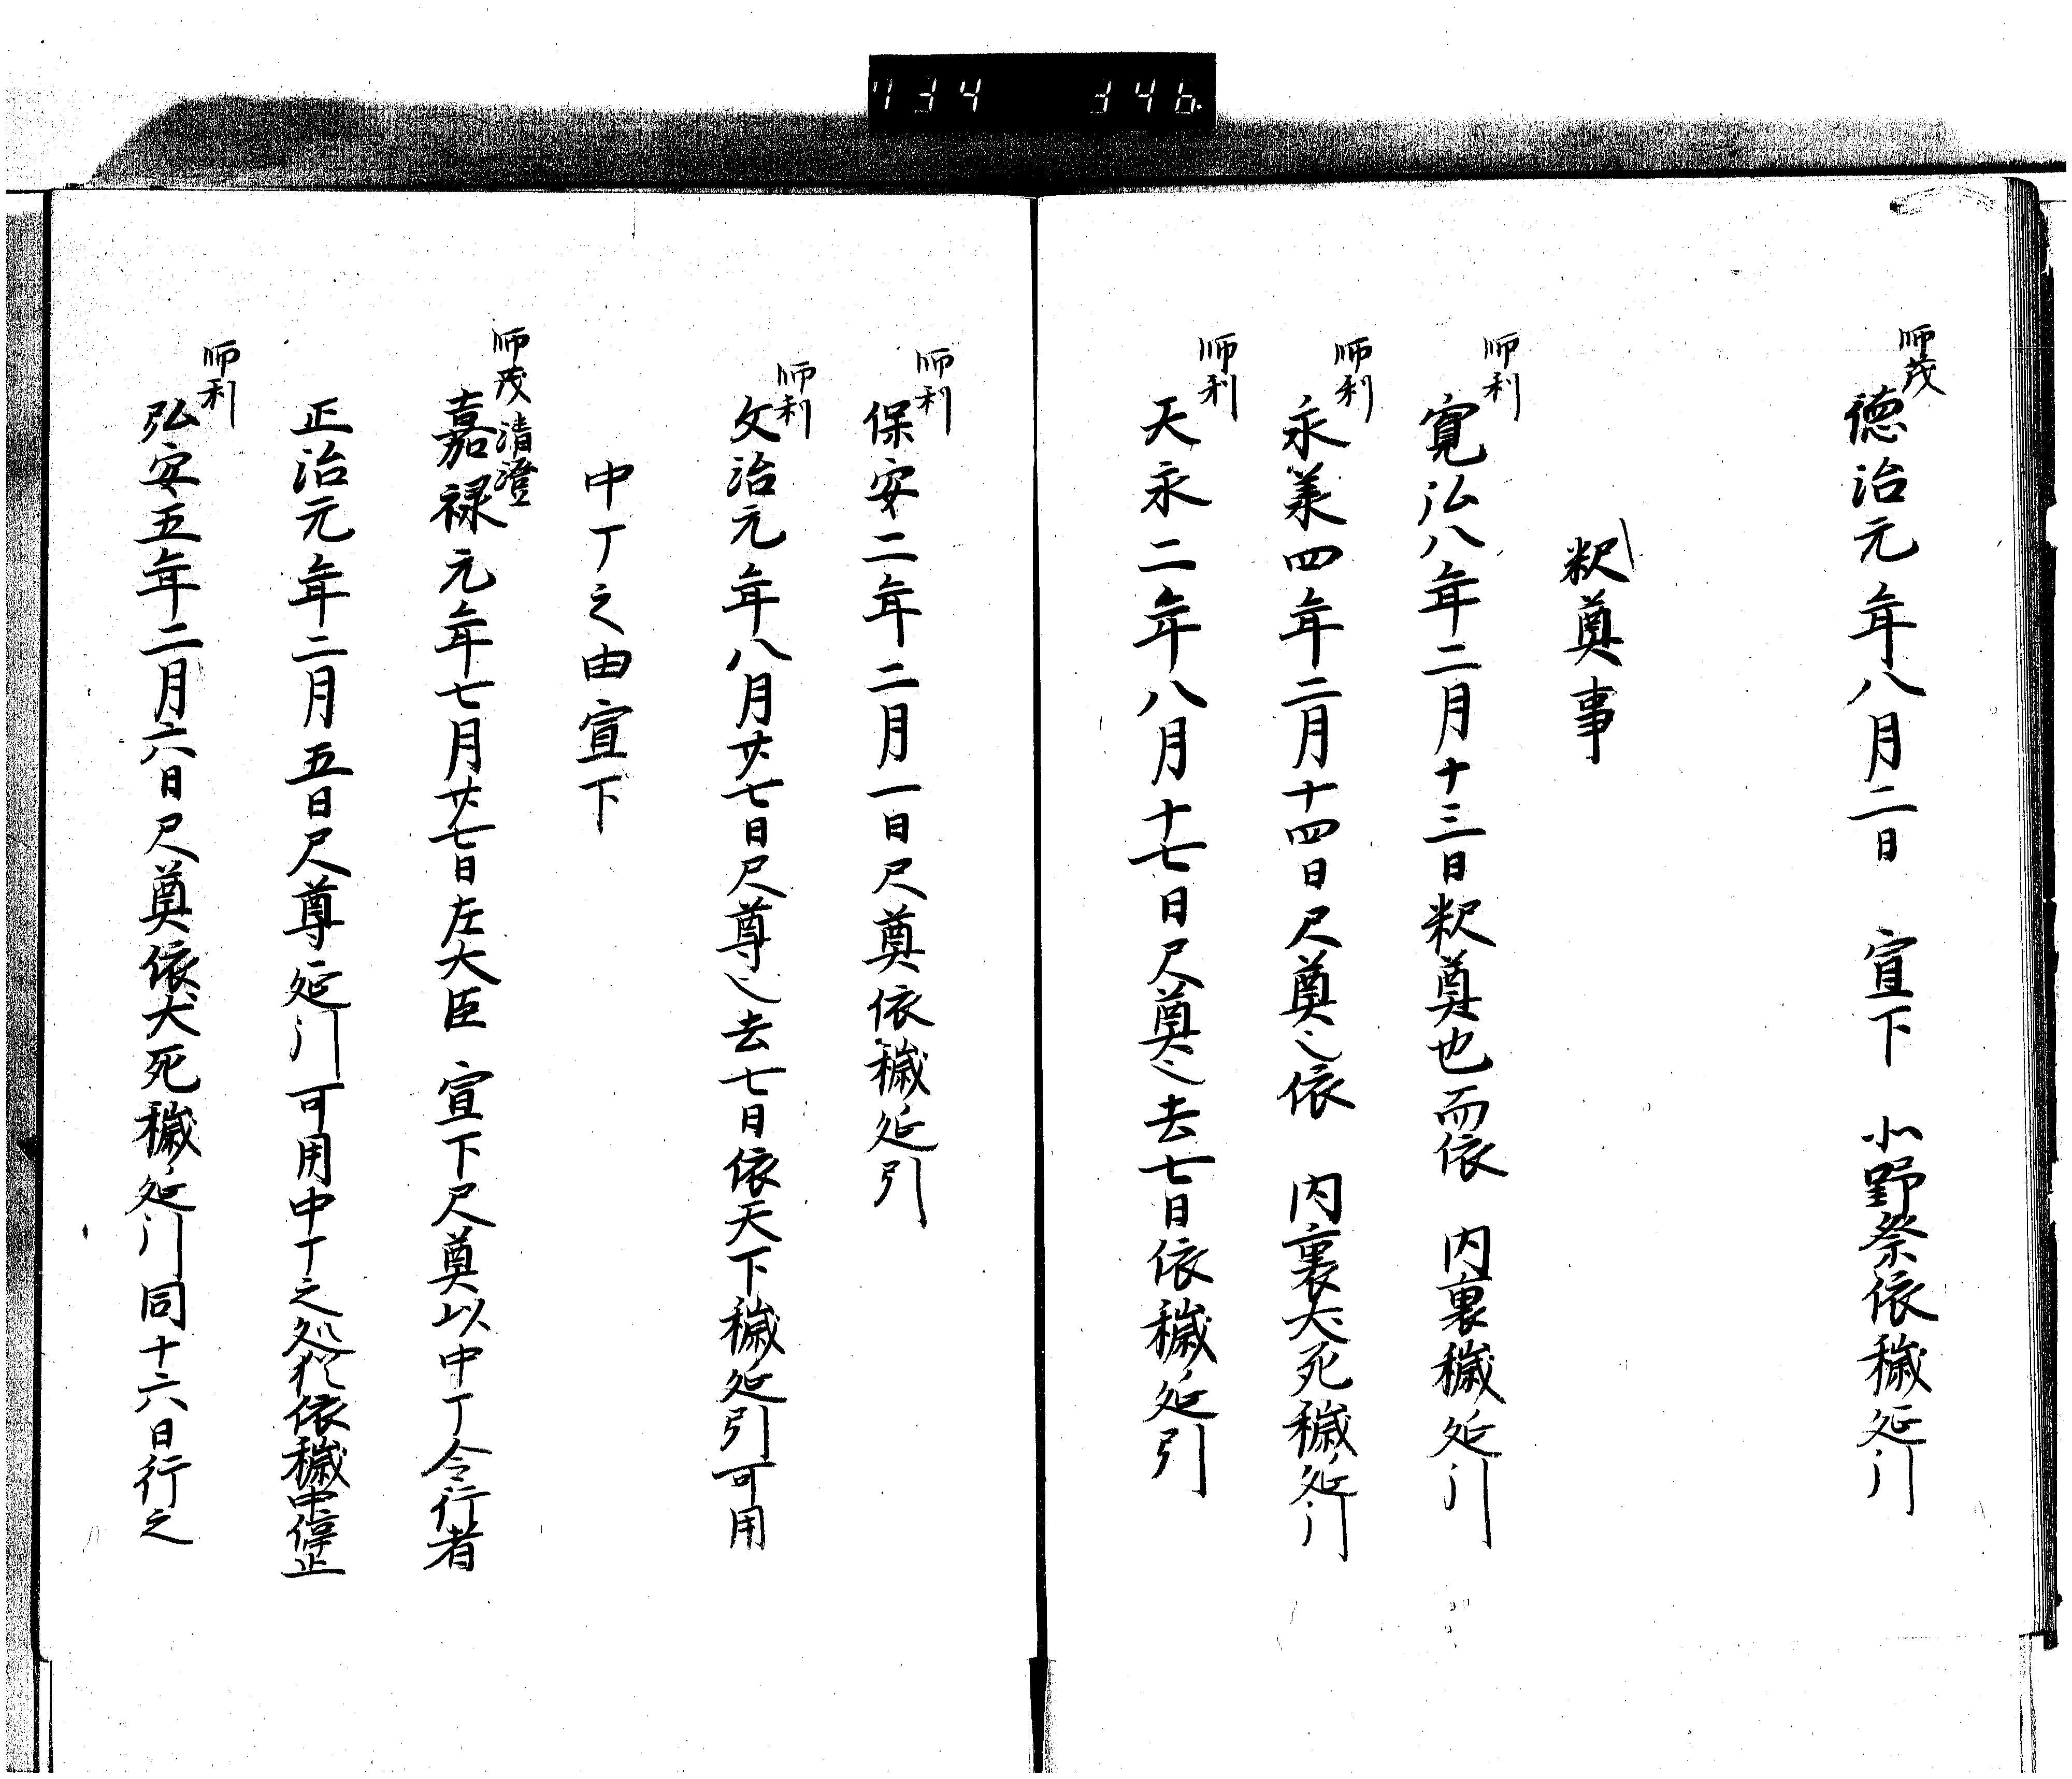 734 346
師茂
德治元年八月二日 宣下 北野祭依穢延引
釈奠事
師利
寛弘八年二月十三日釈奠也而依 内裏穢延引
師利
永承四年二月十四日尺奠〻依 内裏犬死穢延引
師利
天永二年八月十七日尺奠〻去七日依穢延引
師利
保安二年二月一日尺奠依穢延引
師利
文治元年八月廿七日尺尊〻去七日依天下穢延引可用
中丁之由宣下
師茂 清澄
嘉禄元年七月廿七日左大臣 宣下尺奠以中丁令行者
正治元年二月五日尺尊延引可用中丁之処猶依穢中停止
師利
弘安五年二月六日尺奠依犬死穢延引同十六日行之